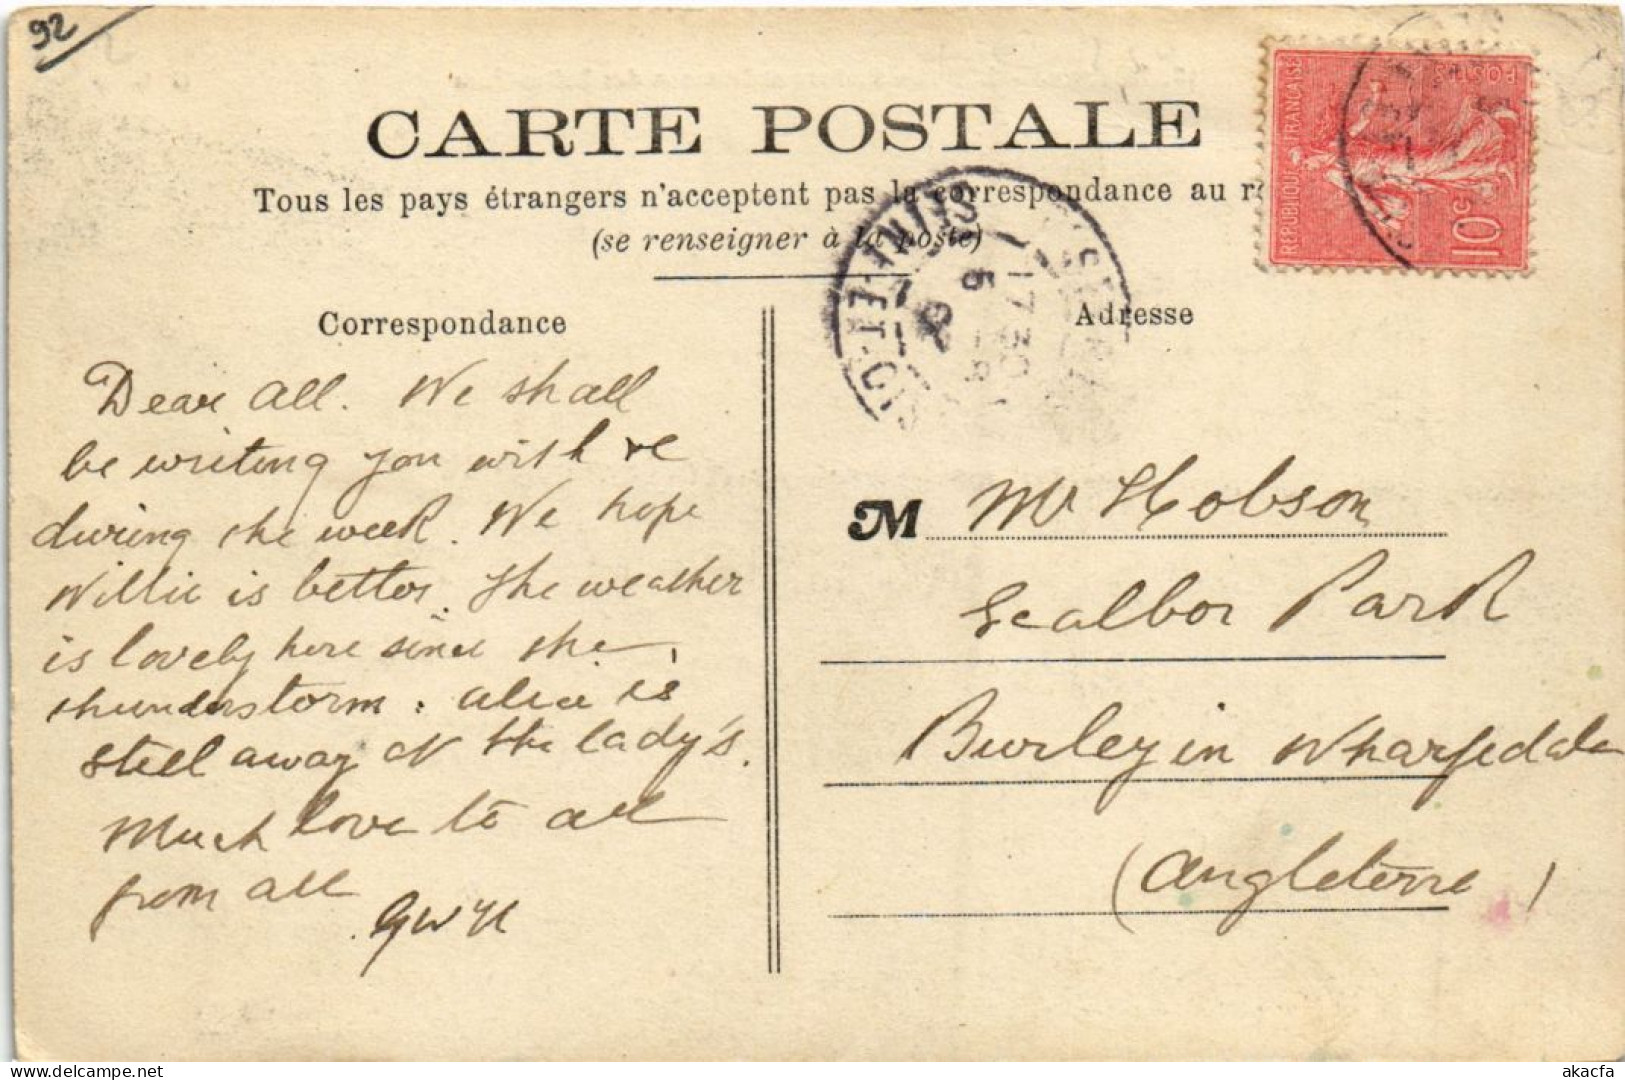 92
CARTE POSTALE
Tous les pays étrangers n'acceptent pas la correspondance au
(se renseigner à la poste)
REPUBLIQUE FRANÇAISE
POSTES
10c
SEINE-ET-OISE
17 30
5
Correspondance
Dear all. We shall
be writing you with
during the week. We hope
Willie is better. The weather
is lovely here since the
thunderstorm. Alice is
still away at the lady's.
Much love to all
from all
GWH
Adresse
M Mr Hobson
Scalbor Park
Burley in Wharfedale
(Angleterre)
akpool.com
akacfa